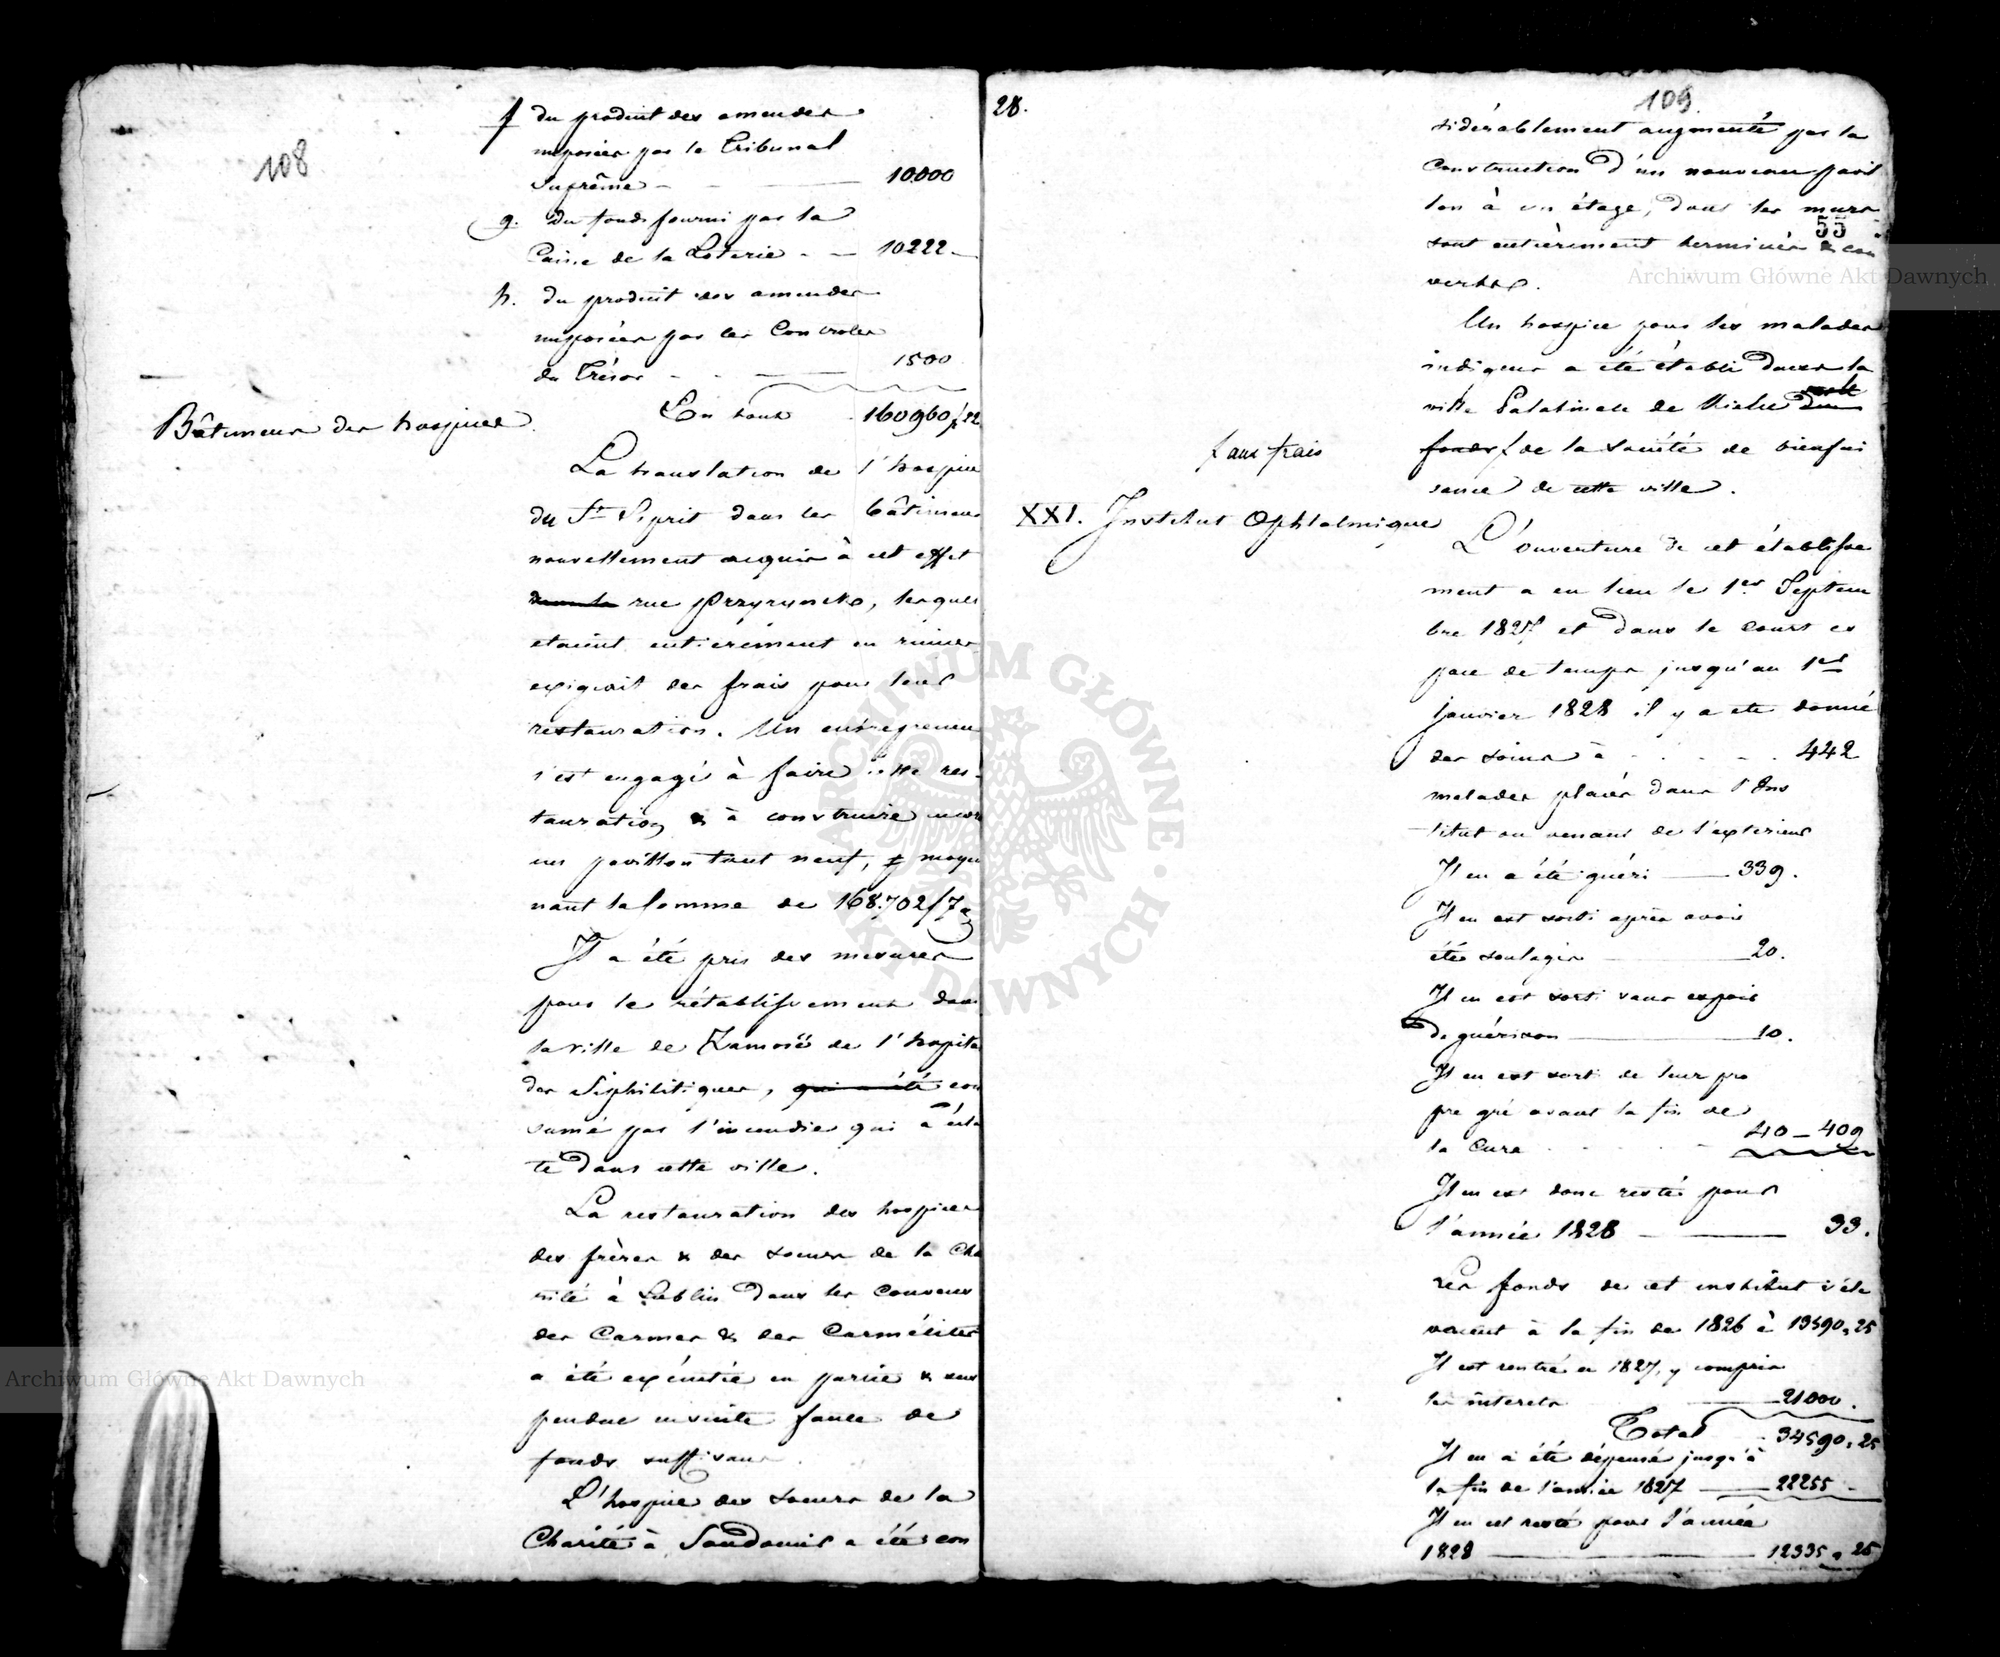 108
f du produit des amendes
imposées par le Tribunal
Suprême - - — 10.000
g. du fonds fourni par la
Caisse de la Loterie - — 10222 —
h. du produit des amendes
imposées par les Controles
du Trésor - - — 1500
En tout 160960 f 22
Bâtimens des hospices.
La translation de l'hospice
du St Esprit dans les bâtimens
nouvellement acquis à cet effet
rue Przyrynek, lesquels
etaient entièrement en ruines
exigeait des frais pour leur
restauration. Un entrepreneur
s'est engagé à faire cette res-
tauration & à construire
un pavillon tout neuf, moyen
nant la somme de 168.702 f 7 g
Il a été pris des mesures
pour le rétablissement dans
la ville de Zamość de l'hopital
des Siphilitiques, qui a été con
sumé par l'incendie qui a écla
té dans cette ville.
La restauration des hospices
des frères & des soeurs de la Cha
rité à Lublin dans les Couvens
des Carmes & des Carmélites
a été exécutée en partie & sus
pendue ensuite faute de
fonds suffisans.
L'hospice des soeurs de la
Charité à Sandomir a été con
28.
109
sidérablement augmenté par la
Construction d'un nouveau pavil
lon à un étage, dont les murs
55
sont entièrement terminés & cou
verts.
Un hospice pour les malades
indigens a été établi dans la
ville Palatinale de Kielce
fonds f de la société de bienfai
f aux frais
sance de cette ville.
XXI. Institut Ophtalmique
L'ouverture de cet établisse
ment a eu lieu le 1er Septem
bre 1827 et dans le court es
pace de temps jusqu'au 1er
janvier 1828 il y a été donné
des soins à - - - - 442
malades placés dans l'Ins
titut ou venant de l'exterieur
Il en a été guéri — 339.
Il en est sorti après avoir
été soulagés — 20.
Il en est sorti sans espoir
de guérison — 10.
Il en est sorti de leur pro
pre gré avant la fin de
la Cure - - - 40 — 409
Il en est donc resté pour
l'année 1828 — 33.
Les fonds de cet institut s'éle
vaient à la fin de 1826 à 13590, 25
Il est rentré en 1827, y compris
les interets — 21000.
Total - 34590, 25
Il en a été dépensé jusqu'à
la fin de l'année 1827 — 22255 -
Il en est resté pour l'année
1828 — 12335, 25
Archiwum Główne Akt Dawnych
Archiwum Główne Akt Dawnych
ARCHIWUM GŁÓWNE AKT DAWNYCH